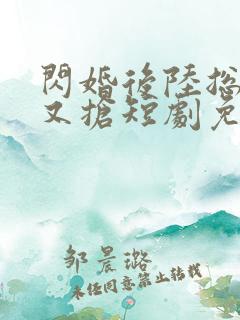 閃婚後陸總
又搶短劇免
邹晨璐
未经同意禁止转载